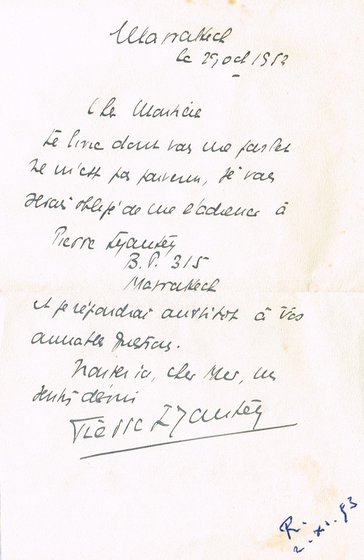 Marrakech
le 29 oct 1952
Cher Monsieur
Le livre dont vous me parlez
ne m'est pas parvenu, je vous
serais obligé de me l'adresser à
Pierre
B.P. 315
Marrakech
et je répondrai aussitôt à vos
aimables questions.
cher Mr, mes
Pierre
R.
2. XI. 53